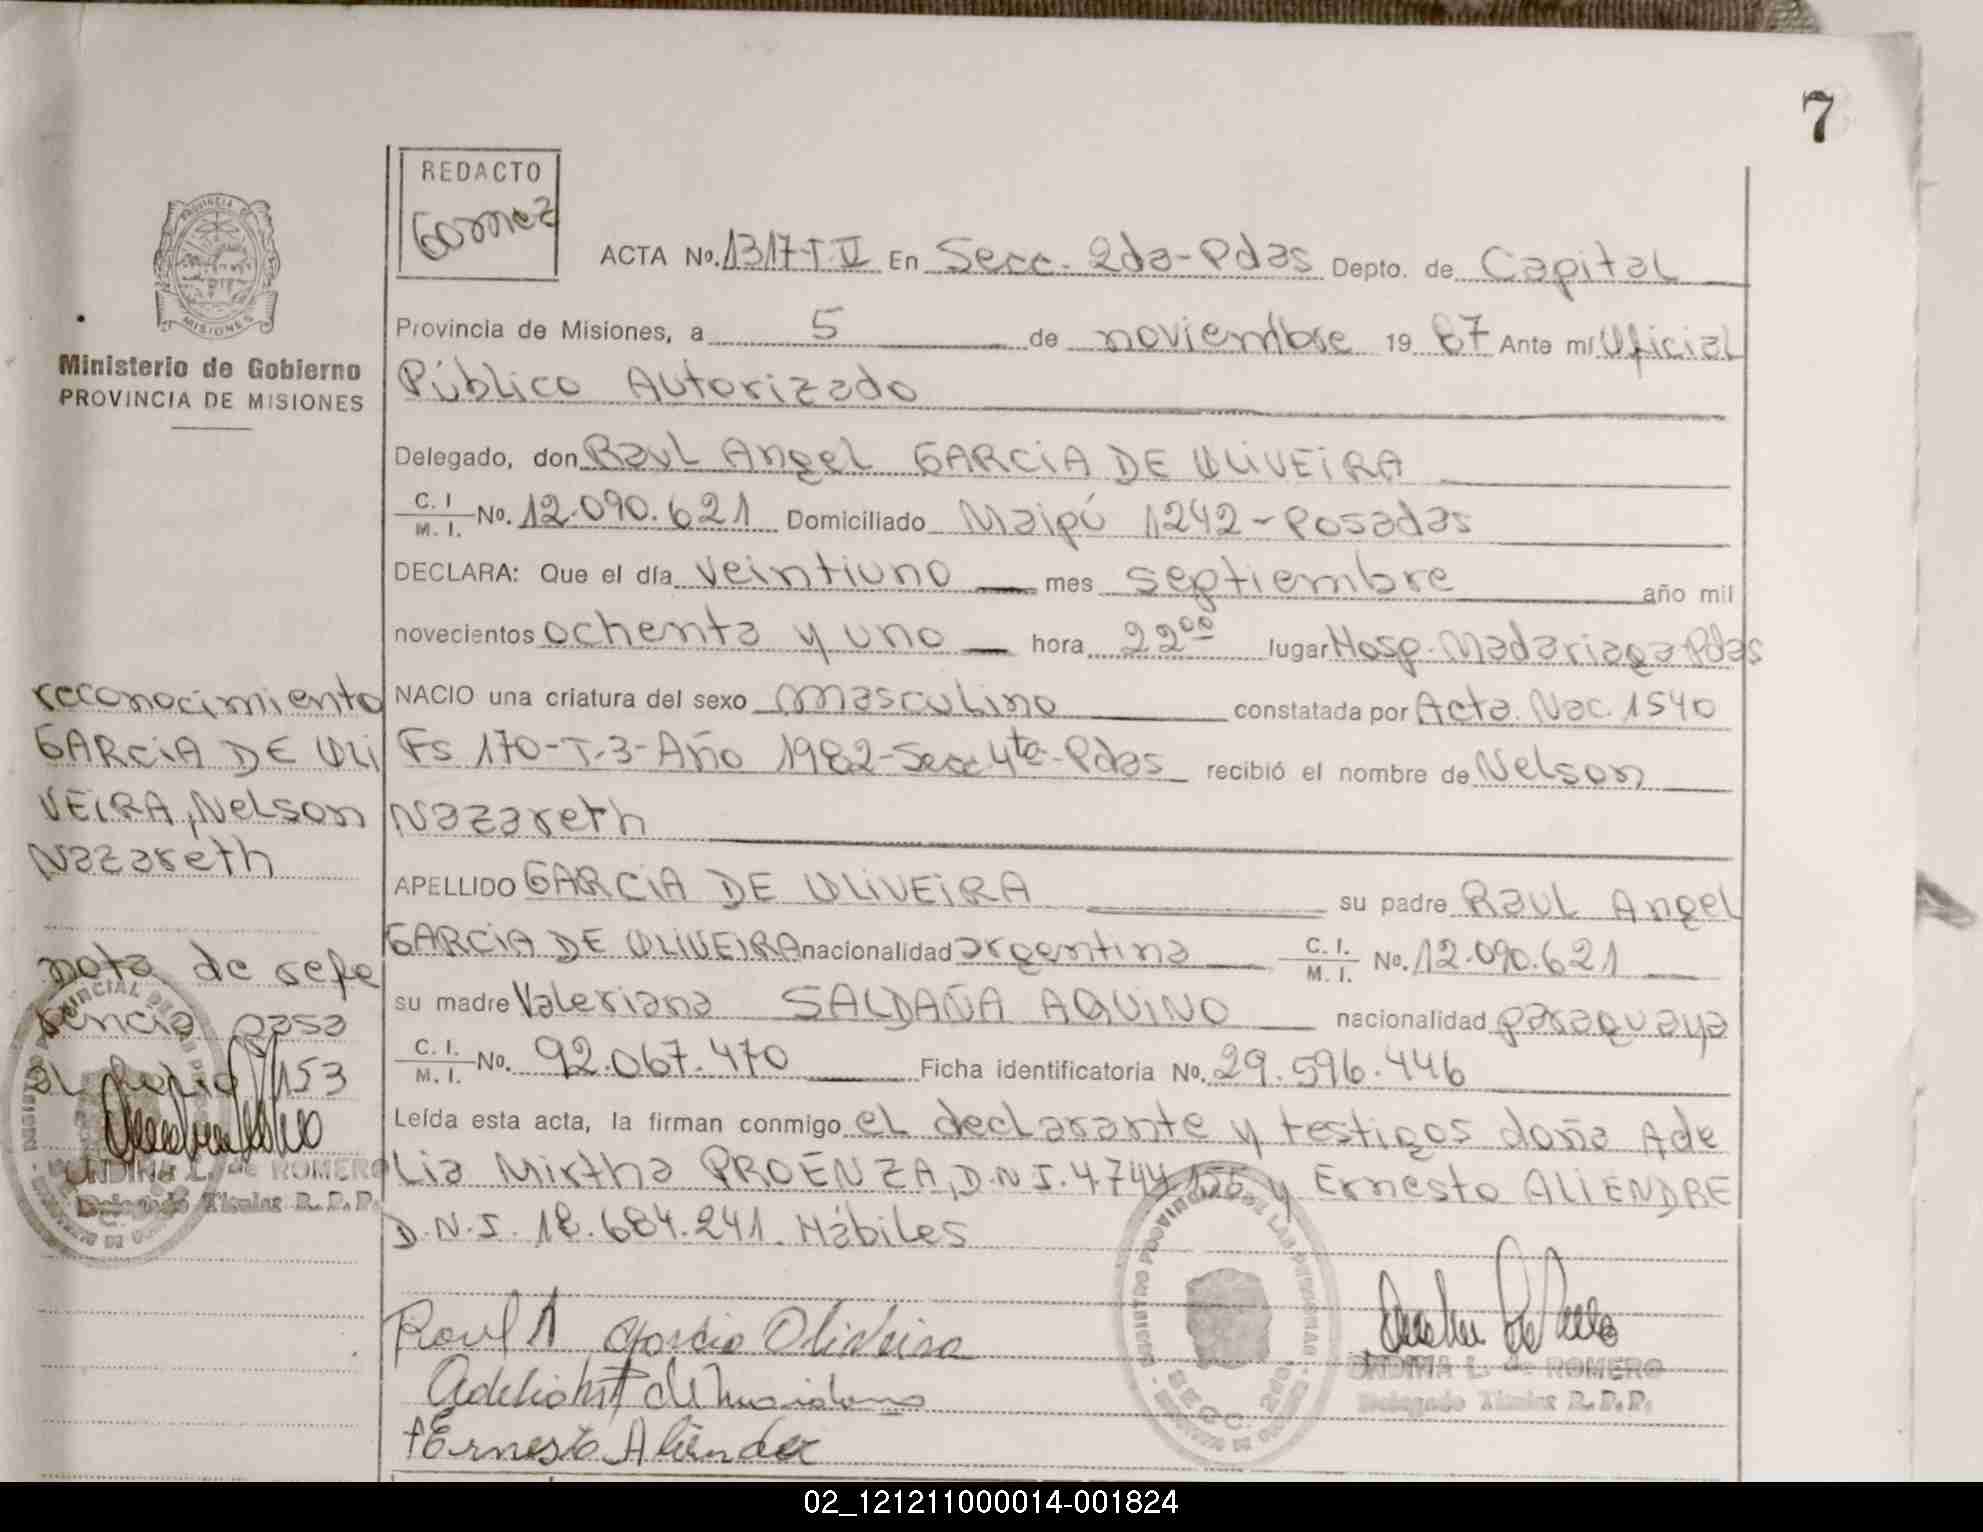 7
REDACTO
Gomez
ACTA No. 1317-T.II En Secc. 2da-Pdas Depto. de Capital
PROVINCIA DE
MISIONES
Ministerio de Gobierno
PROVINCIA DE MISIONES
Provincia de Misiones, a 5 de noviembre 19 87 Ante mí Oficial
Público Autorizado
Delegado, don Raul Angel GARCIA DE OLIVEIRA
C. I. M. I. No. 12.090.621 Domiciliado Maipú 1242-Posadas
DECLARA: Que el día veintiuno mes septiembre año mil
novecientos ochenta y uno hora 22 00 lugar Hosp. Madariaga Pdas
NACIO una criatura del sexo masculino constatada por Acta. Nac. 1540
Fs 170-T.3-Año 1982-Secc 4ta-Pdas recibió el nombre de Nelson
Nazareth
APELLIDO GARCIA DE OLIVEIRA su padre Raul Angel
GARCIA DE OLIVEIRA nacionalidad argentina C. I. M. I. No. 12.090.621
su madre Valeriana SALDAÑA AQUINO nacionalidad paraguaya
C. I. M. I. No. 92.067.470 Ficha identificatoria No. 29.596.446
Leída esta acta, la firman conmigo el declarante y testigos doña Ade
lia Mirtha PROENZA, D.N.I. 4.744.155 y Ernesto ALIENDRE
D.N.I. 18.684.241. Hábiles
reconocimiento
GARCIA DE OLI
VEIRA, Nelson
Nazareth
nota de refe
rencia pasa
al folio 153
UNDINA L. de ROMERO
Delegado Titular R.P.P.
Raul A Garcia Oliveira
Ernesto Aliendre
REGISTRO PROVINCIAL DE LAS PERSONAS
SECC. 2da.
UNDINA L. de ROMERO
Delegado Titular R.P.P.
02_121211000014-001824